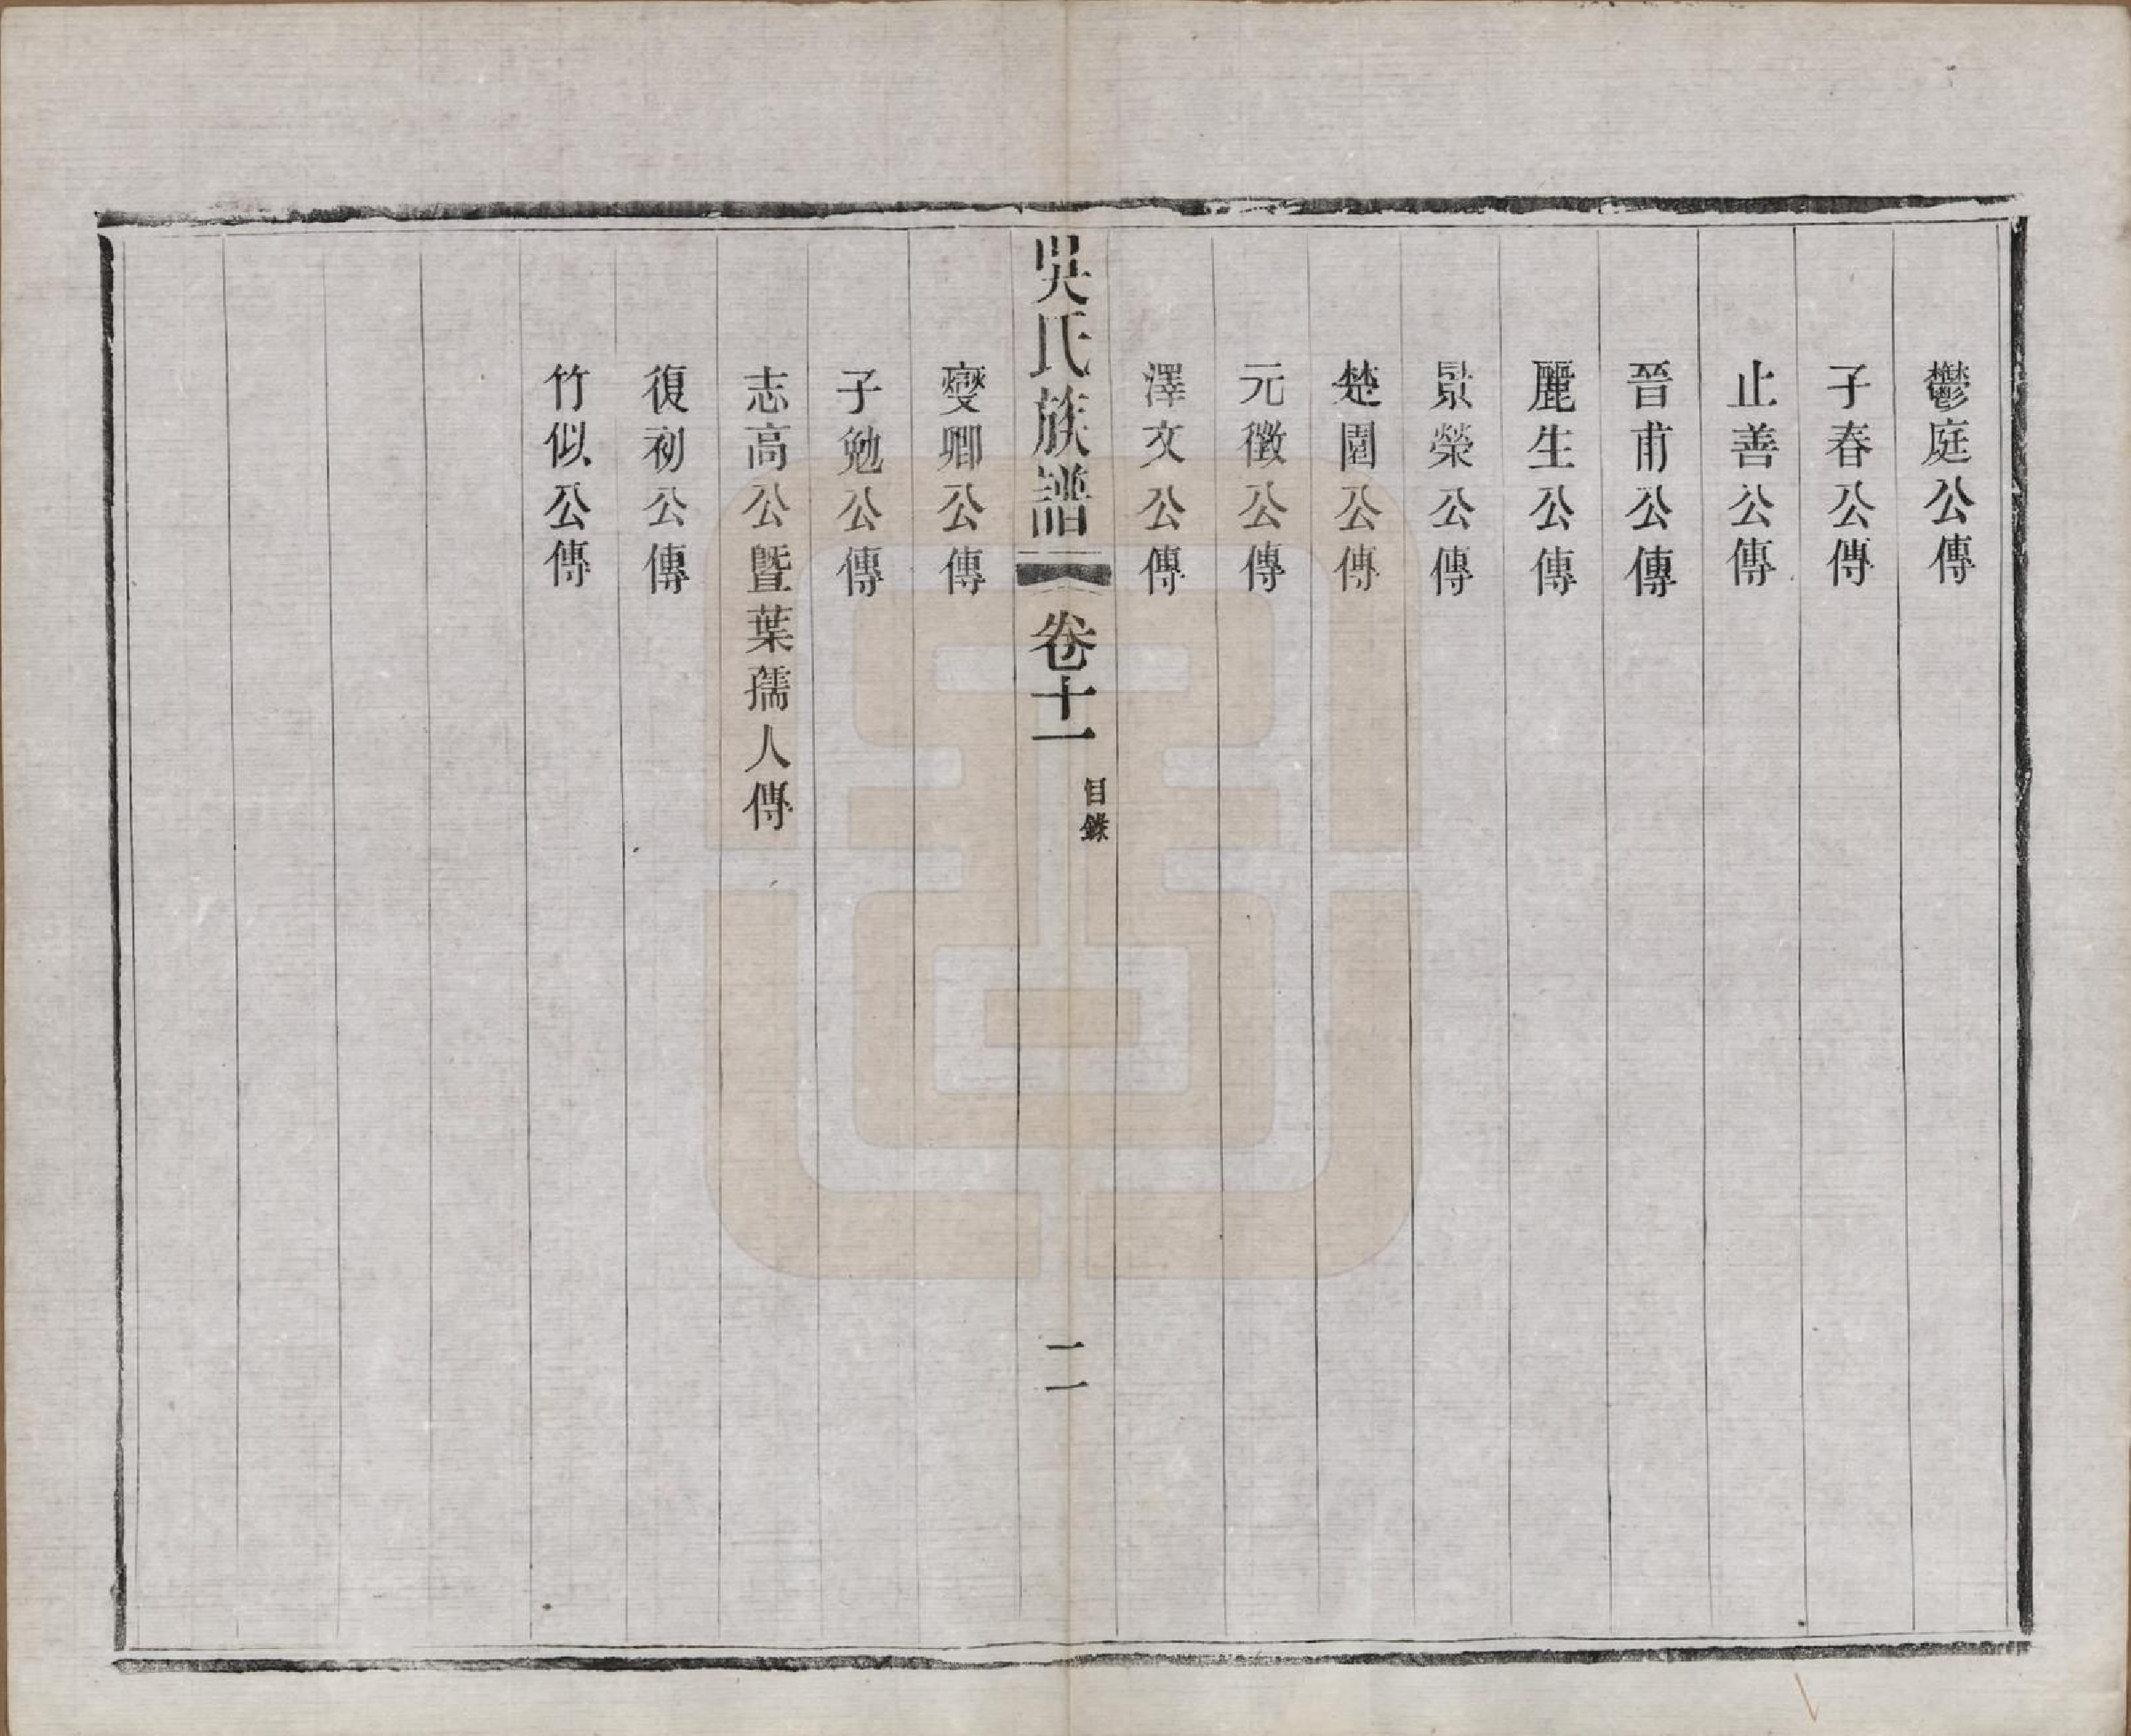 鬱庭公傳
子春公傳
止善公傳
晉甫公傳
麗生公傳
景榮公傳
楚園公傳
元徵公傳
澤文公傳
吳氏族譜
卷十一
目錄
二
燮卿公傳
子勉公傳
志高公暨葉孺人傳
復初公傳
竹似公傳